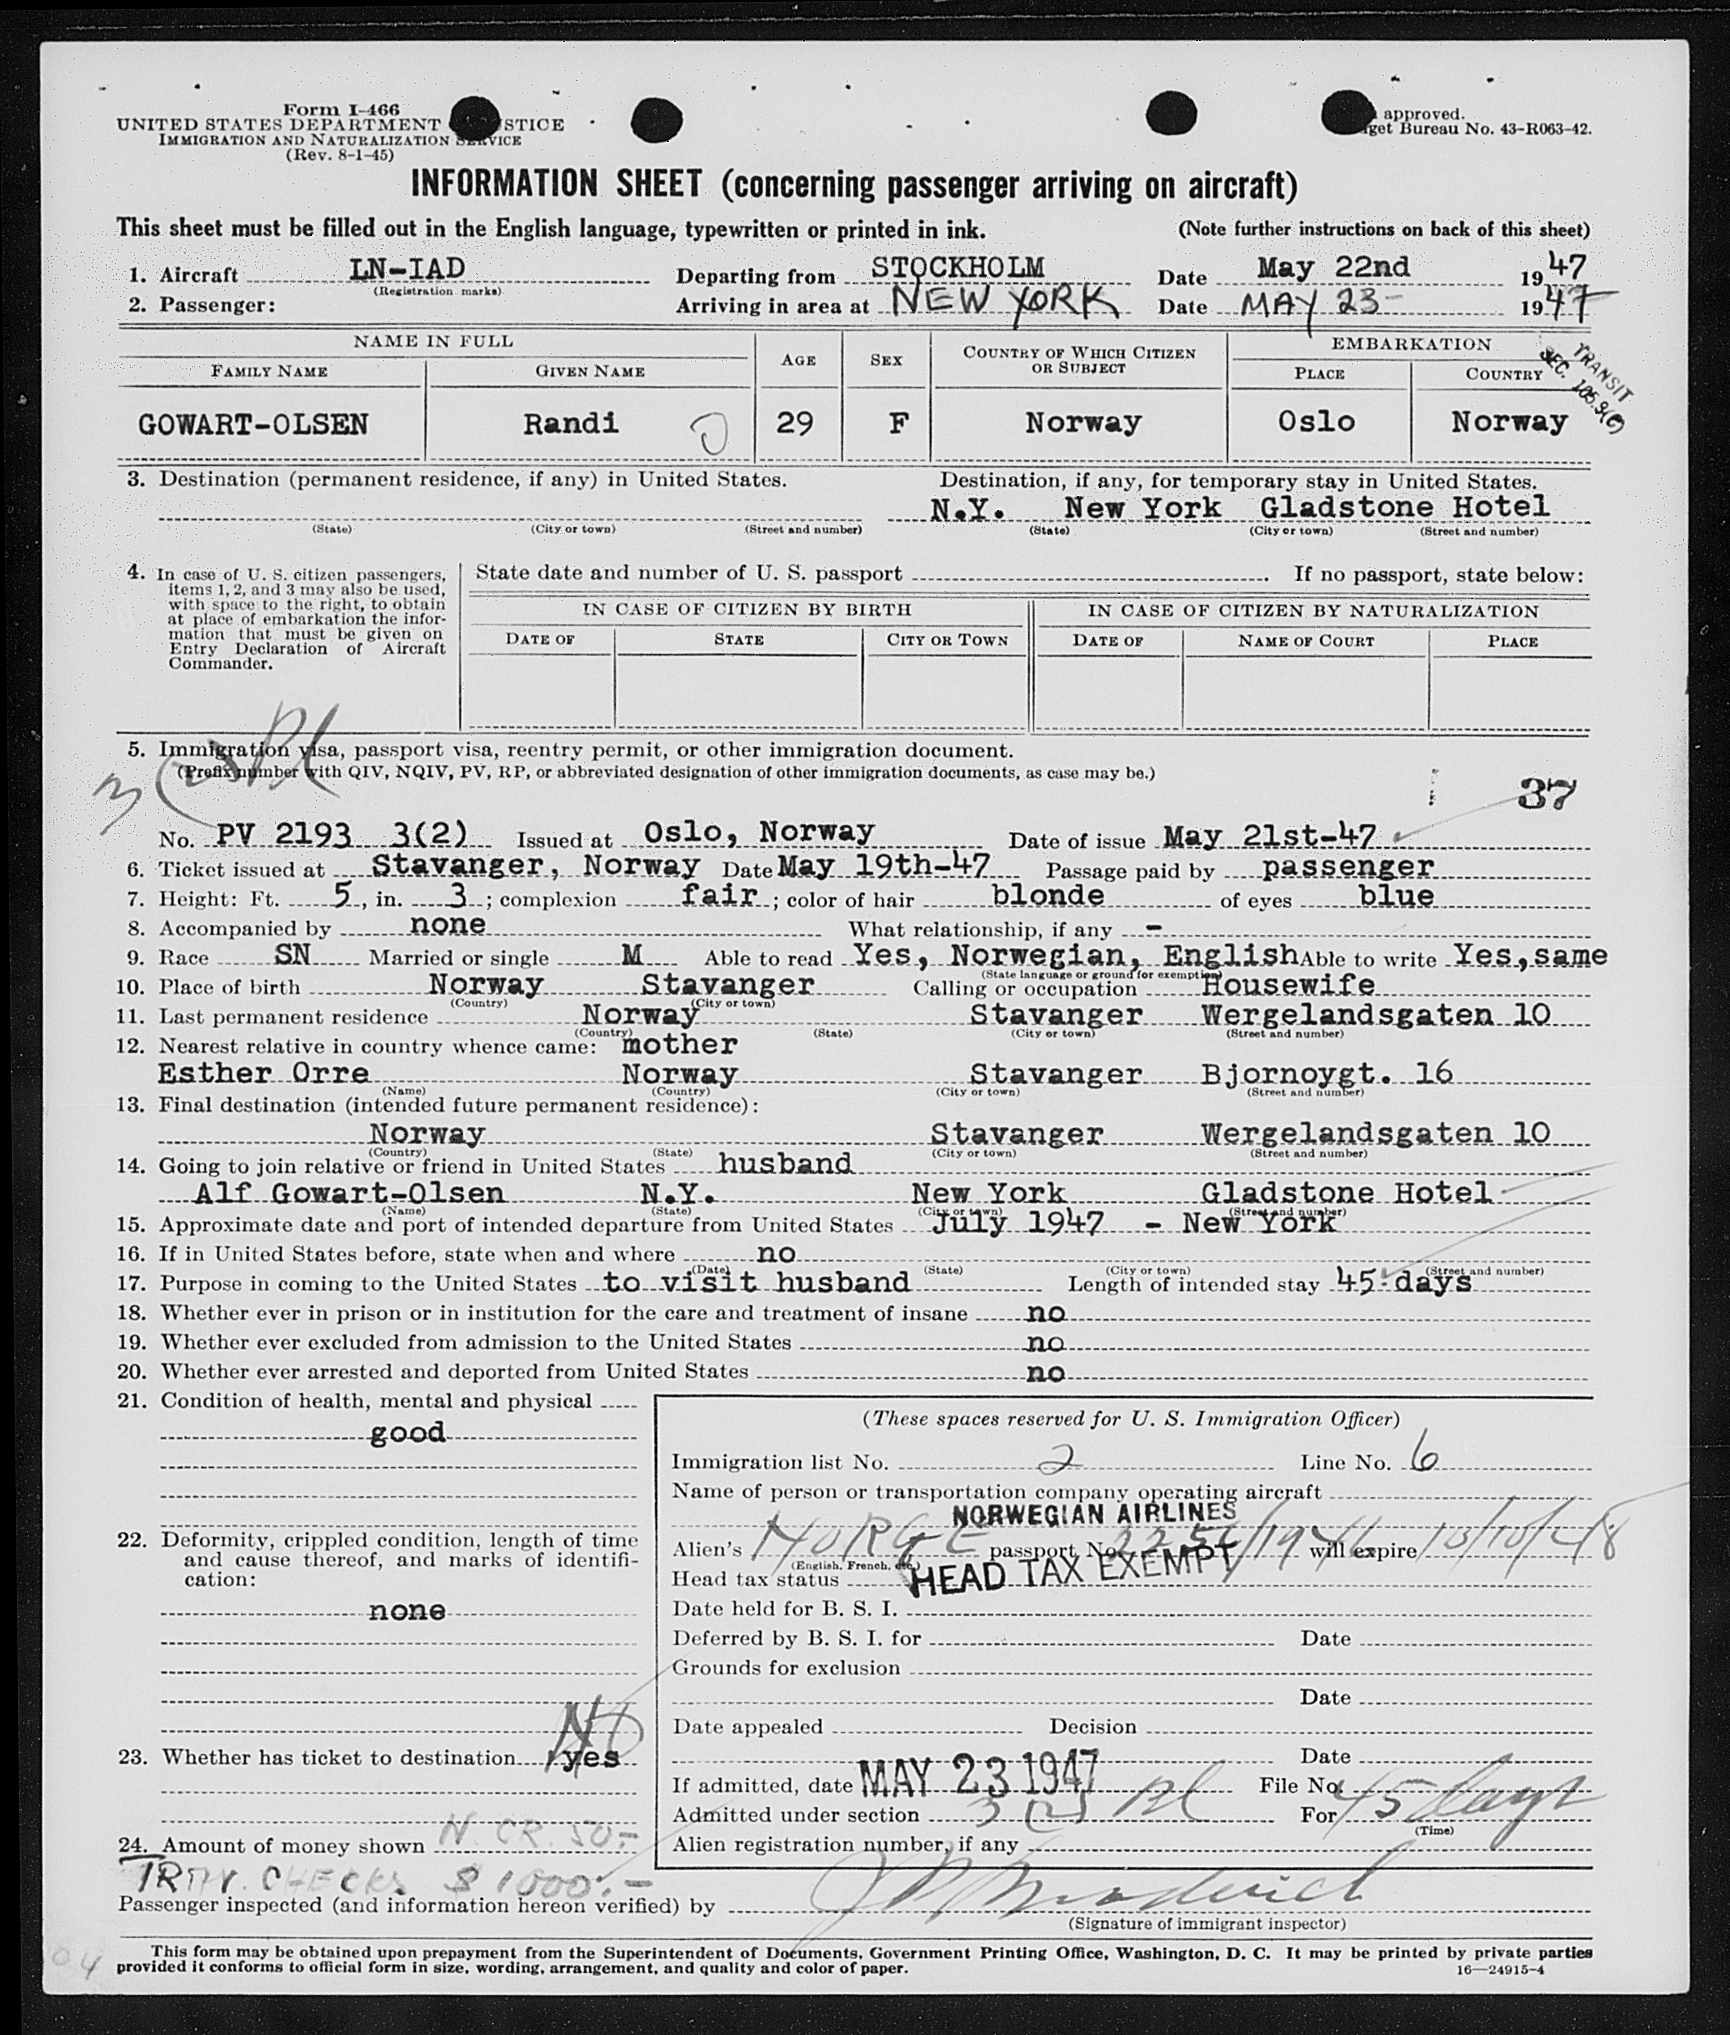 Form I-466
UNITED STATES DEPARTMENT STICE
IMMIGRATION AND NATURALIZATION SERVICE
(Rev. 8-1-45)
approved.
get Bureau No. 43-R063-42.
INFORMATION SHEET (concerning passenger arriving on aircraft)
This sheet must be filled out in the English language, typewritten or printed in ink. (Note further instructions on back of this sheet)
1. Aircraft LN-IAD Departing from STOCKHOLM Date May 22nd 1947
(Registration marks)
2. Passenger: Arriving in area at NEW YORK Date MAY 23- 1947
NAME IN FULL AGE SEX COUNTRY OF WHICH CITIZEN OR SUBJECT EMBARKATION
FAMILY NAME GIVEN NAME PLACE COUNTRY
TRANSIT
SEC. 105.3(C)
GOWART-OLSEN Randi 29 F Norway Oslo Norway
3. Destination (permanent residence, if any) in United States. Destination, if any, for temporary stay in United States.
N.Y. New York Gladstone Hotel
(State) (City or town) (Street and number) (State) (City or town) (Street and number)
4. In case of U. S. citizen passengers,
items 1, 2, and 3 may also be used,
with space to the right, to obtain
at place of embarkation the infor-
mation that must be given on
Entry Declaration of Aircraft
Commander.
State date and number of U. S. passport . If no passport, state below:
IN CASE OF CITIZEN BY BIRTH IN CASE OF CITIZEN BY NATURALIZATION
DATE OF STATE CITY OR TOWN DATE OF NAME OF COURT PLACE
5. Immigration visa, passport visa, reentry permit, or other immigration document.
(Prefix number with QIV, NQIV, PV, RP, or abbreviated designation of other immigration documents, as case may be.)
3 (2) Bl
37
No. PV 2193 3(2) Issued at Oslo, Norway Date of issue May 21st-47
6. Ticket issued at Stavanger, Norway Date May 19th-47 Passage paid by passenger
7. Height: Ft. 5, in. 3; complexion fair; color of hair blonde of eyes blue
8. Accompanied by none What relationship, if any -
9. Race SN Married or single M Able to read Yes, Norwegian, English Able to write Yes, same
(State language or ground for exemption)
10. Place of birth Norway Stavanger Calling or occupation Housewife
(Country) (City or town)
11. Last permanent residence Norway Stavanger Wergelandsgaten 10
(Country) (State) (City or town) (Street and number)
12. Nearest relative in country whence came: mother
Esther Orre Norway Stavanger Bjornoygt. 16
(Name) (Country) (City or town) (Street and number)
13. Final destination (intended future permanent residence):
Norway Stavanger Wergelandsgaten 10
(Country) (State) (City or town) (Street and number)
14. Going to join relative or friend in United States husband
Alf Gowart-Olsen N.Y. New York Gladstone Hotel
(Name) (State) (City or town) (Street and number)
15. Approximate date and port of intended departure from United States July 1947 - New York
16. If in United States before, state when and where no
(Date) (State) (City or town) (Street and number)
17. Purpose in coming to the United States to visit husband Length of intended stay 45 days
18. Whether ever in prison or in institution for the care and treatment of insane no
19. Whether ever excluded from admission to the United States no
20. Whether ever arrested and deported from United States no
21. Condition of health, mental and physical
good
22. Deformity, crippled condition, length of time
and cause thereof, and marks of identifi-
cation:
none
23. Whether has ticket to destination yes
24. Amount of money shown N. CR. 50-
TRAV. CHECKS $ 1000.-
(These spaces reserved for U. S. Immigration Officer)
Immigration list No. 2 Line No. 6
Name of person or transportation company operating aircraft
NORWEGIAN AIRLINES
Alien's NORGE passport No. will expire 10/10/48
(English, French, etc.)
Head tax status HEAD TAX EXEMPT
Date held for B. S. I.
Deferred by B. S. I. for Date
Grounds for exclusion
Date
Date appealed Decision
Date
If admitted, date MAY 23 1947 File No.
Admitted under section 3 (2) Bl For 45 days
(Time)
Alien registration number, if any
Passenger inspected (and information hereon verified) by
(Signature of immigrant inspector)
This form may be obtained upon prepayment from the Superintendent of Documents, Government Printing Office, Washington, D. C. It may be printed by private parties
provided it conforms to official form in size, wording, arrangement, and quality and color of paper. 16—24915-4